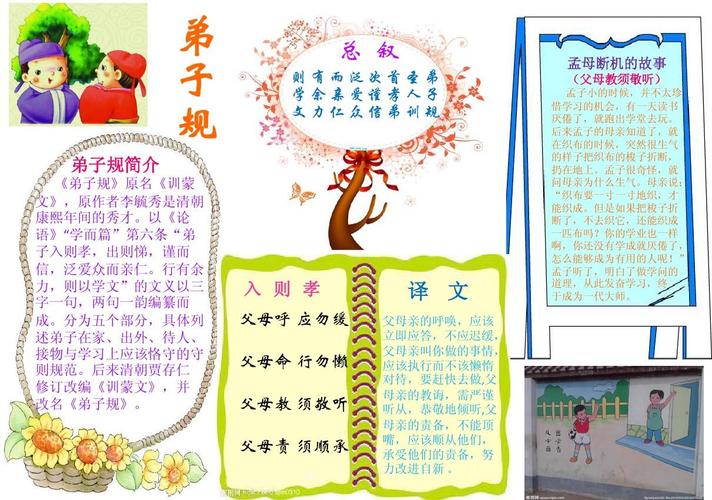 弟子规
总 叙
弟子规
圣人训
首孝弟
次谨信
泛爱众
而亲仁
有余力
则学文
孟母断机的故事
（父母教须敬听）
孟子小的时候，并不太珍
惜学习的机会，有一天读书
厌倦了，就跑出学堂去玩。
后来孟子的母亲知道了，就
在织布的时候，突然很生气
的样子把织布的梭子折断，
扔在地上。孟子很奇怪，就
问母亲为什么生气。母亲说：
“织布要一寸一地织，才
能织成。但是如果把梭子折
断，不去织它，还能织成
一匹布吗？你的学业也一样
啊，你还没有学成就厌倦了，
怎么能够成为有用的人呢！”
孟子听了，明白了做学问的
道理，从此发奋学习，终
于成为一代大师。
弟子规简介
《弟子规》原名《训蒙
文》，原作者李毓秀是清朝
康熙年间的秀才。以《论
语》“学而篇”第六条“弟
子入则孝，出则悌，谨而
信，泛爱众而亲仁。行有余
力，则以学文”的文义以三
字一句，两句一韵编纂而
成。分为五个部分，具体列
述弟子在家、出外、待人、
接物与学习上应该恪守的守
则规范。后来清朝贾存仁
修订改编《训蒙文》，并
改名《弟子规》。
入 则 孝
父母呼 应勿缓
父母命 行勿懒
父母教 须敬听
父母责 须顺承
译 文
父母亲的呼唤，应该
立即应答，不应迟缓，
父母亲叫你做的事情，
应该执行而不该懒惰
对待，要赶快去做,父
母亲的教诲，需严谨
听从，恭敬地倾听,父
母亲的责备，不能顶
嘴，应该顺从他们，
承受他们的责备，努
力改进自新 。
出必告
反必面